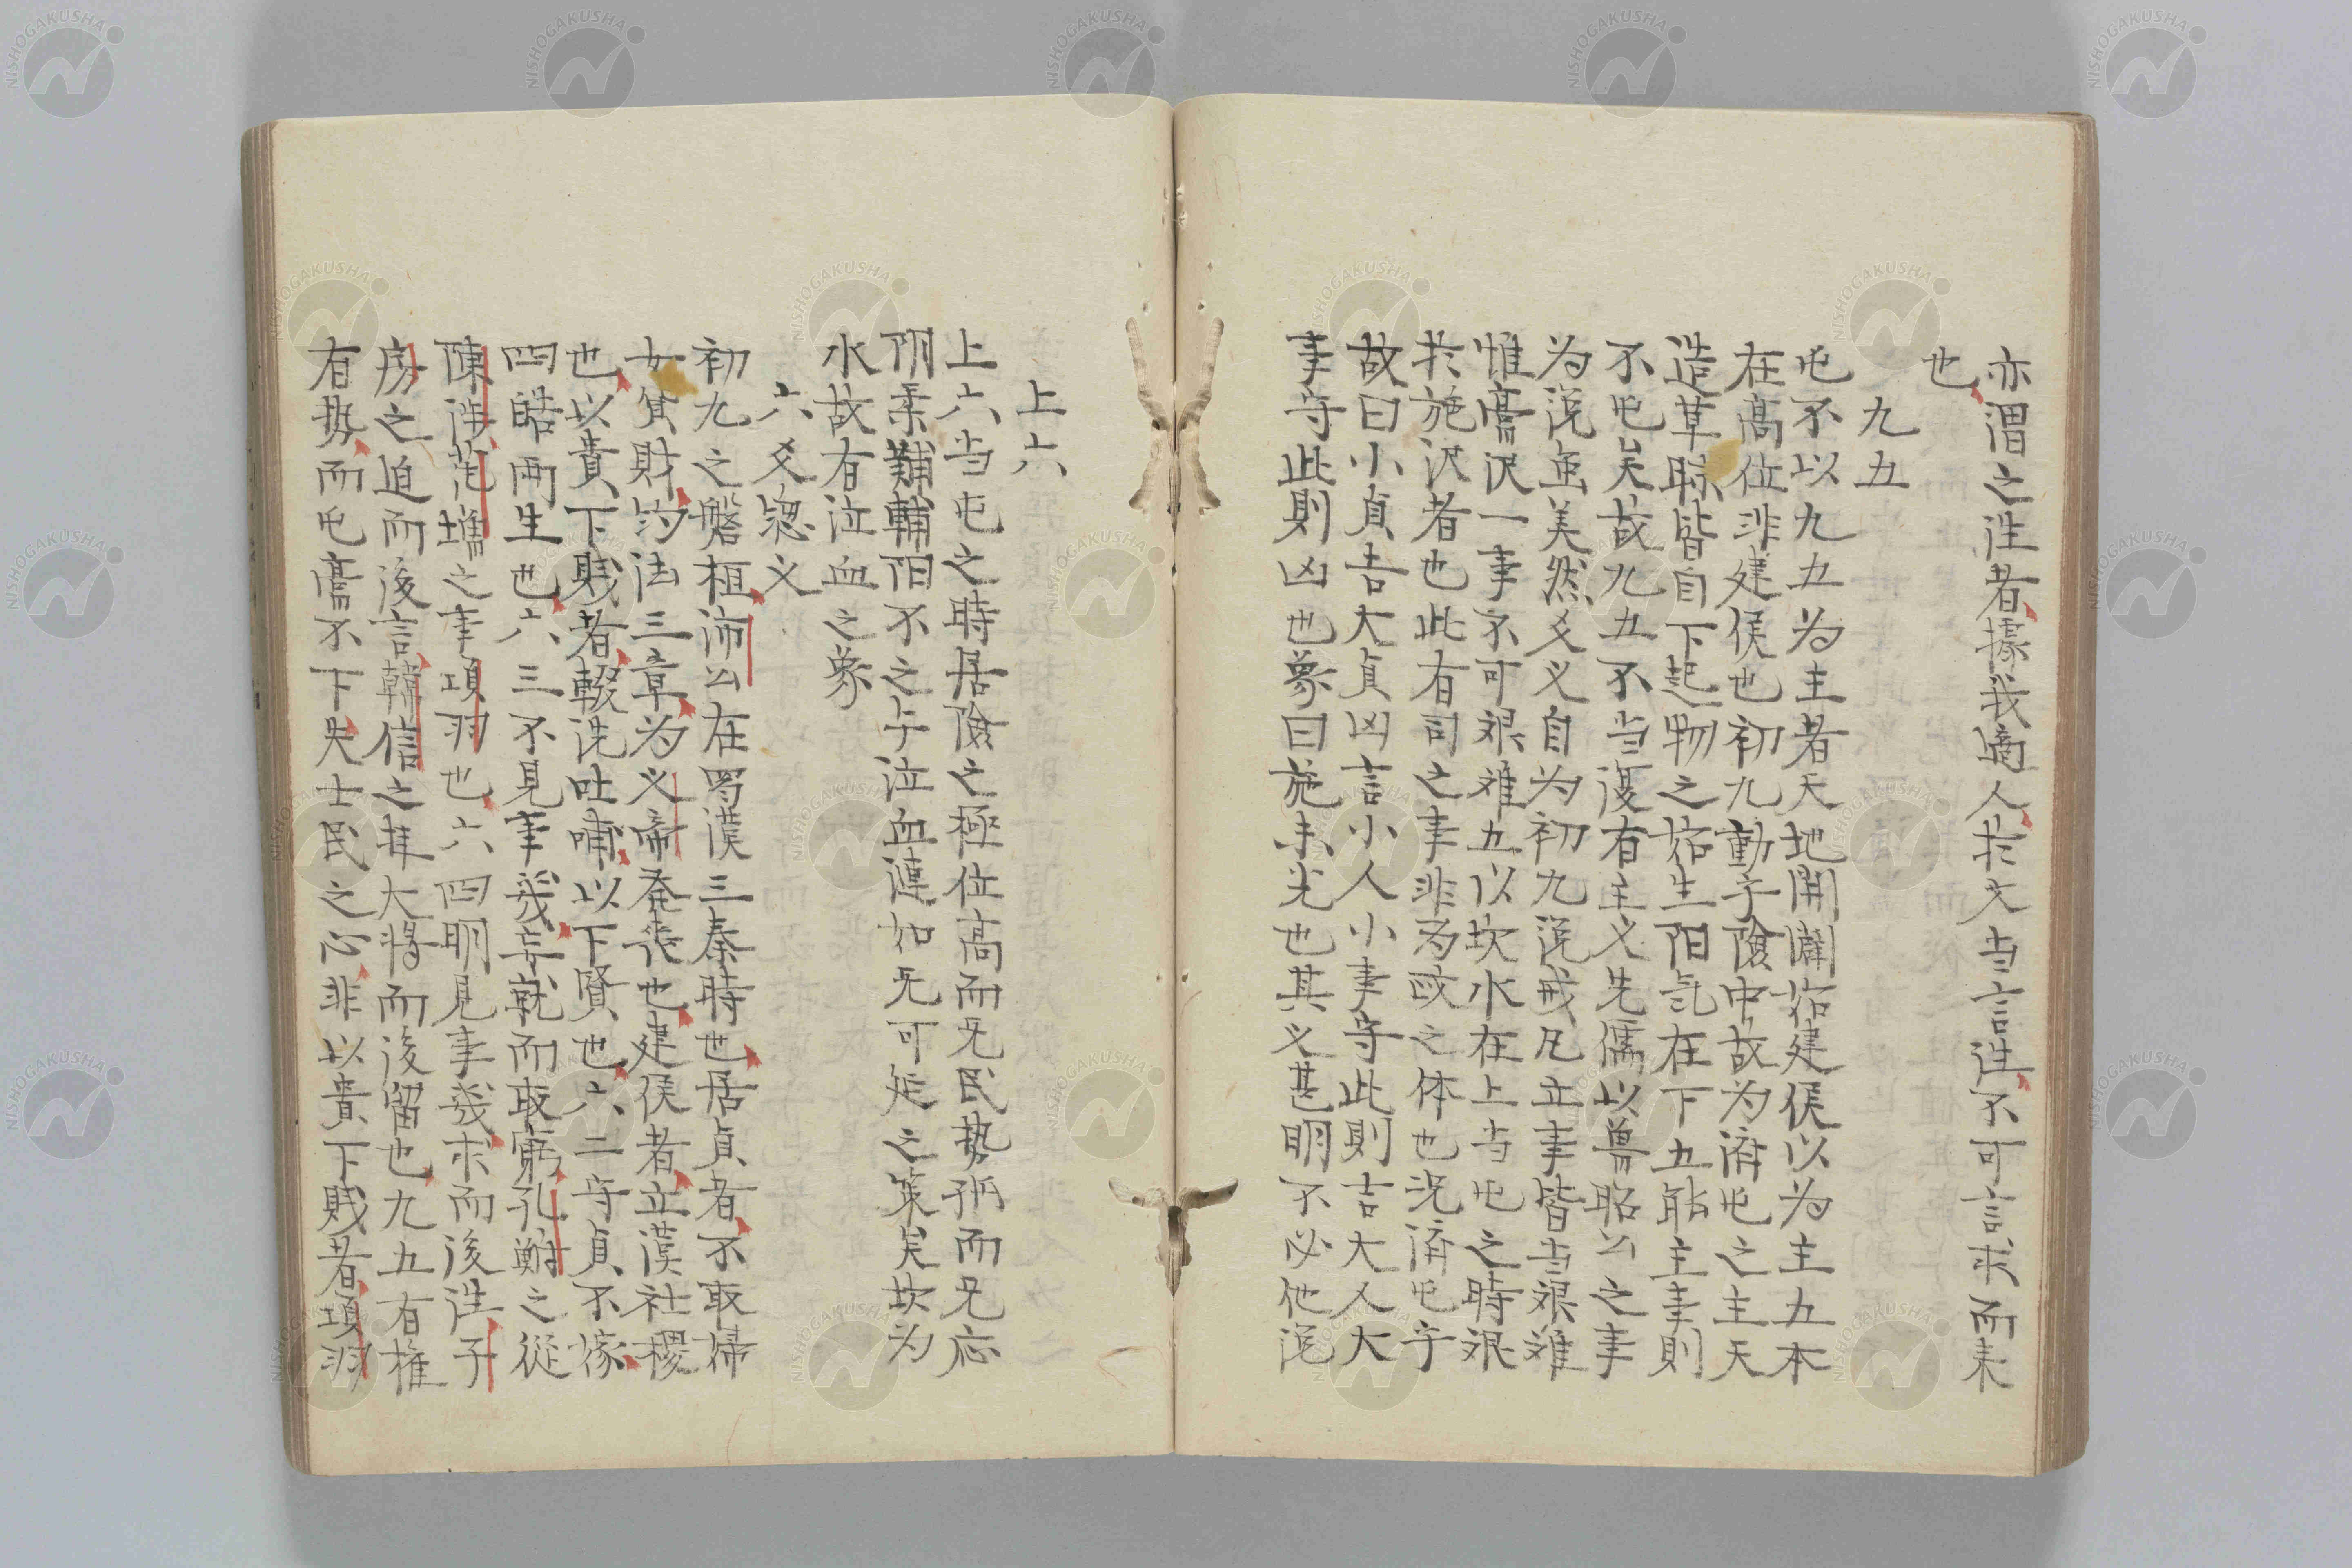 亦謂之往者據我適人於文當言往不可言求而来
也
九五
屯不以九五为主者天地開闢始建侯以为主五本
在髙位非建侯也初九動乎險中故为濟屯之主天
造草昧皆自下起物之始生阳氣在下五能主事則
不屯矣故九五不当復有主义先儒以魯昭公之事
为説虽美然爻义自为初九説戒凡立事皆当艰难
惟膏沢一事不可艰难五以坎水在上当屯之時艰
於施沢者也此有司之事非为政之体也況濟屯乎
故曰小貞吉大貞凶言小人小事守此則吉大人大
事守此則凶也象曰施未光也其义甚明不必他説
上六
上六当屯之時居險之極位高而无民势孤而无応
阴柔難輔阳不之与泣血漣如无可延之策矣坎为
水故有泣血之象
六爻緫义
初九之磐桓沛公在蜀漢三秦時也居貞者不取婦
女貨財約法三章为义帝発喪也建侯者立漢社稷
也以貴下賎者輟洗吐哺以下賢也六二守貞不嫁
四皓両生也六三不見事幾妄就而取窮孔鮒之從
陳渉范増之事項羽也六四明見事幾求而後往子
房之迫而後言韓信之拜大将而後留也九五有権
有势而屯膏不下失士民之心非以貴下賎者項羽